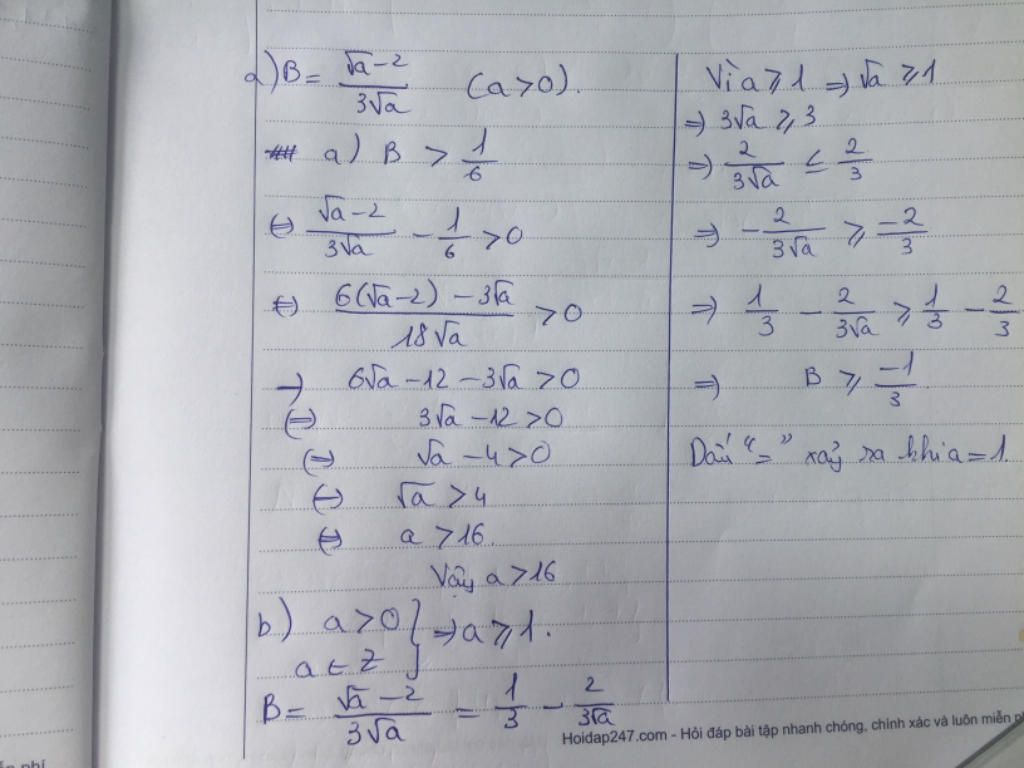 a) B = \frac{\sqrt{a}-2}{3\sqrt{a}} (a > 0).
a) B > \frac{1}{6}
⇔ \frac{\sqrt{a}-2}{3\sqrt{a}} - \frac{1}{6} > 0
⇔ \frac{6(\sqrt{a}-2) - 3\sqrt{a}}{18\sqrt{a}} > 0
→ 6√a - 12 - 3√a > 0
⇔ 3√a - 12 > 0
⇔ √a - 4 > 0
⇔ √a > 4
⇔ a > 16.
Vậy a > 16
b) a > 0
a ∈ Z } ⇒ a ≥ 1.
B = \frac{\sqrt{a}-2}{3\sqrt{a}} = \frac{1}{3} - \frac{2}{3\sqrt{a}}
Vì a ≥ 1 ⇒ √a ≥ 1
⇒ 3√a ≥ 3
⇒ \frac{2}{3\sqrt{a}} ≤ \frac{2}{3}
⇒ -\frac{2}{3\sqrt{a}} ≥ \frac{-2}{3}
⇒ \frac{1}{3} - \frac{2}{3\sqrt{a}} ≥ \frac{1}{3} - \frac{2}{3}
⇒ B ≥ \frac{-1}{3}.
Dấu "=" xảy ra khi a = 1.
Hoidap247.com - Hỏi đáp bài tập nhanh chóng, chính xác và luôn miễn
phí